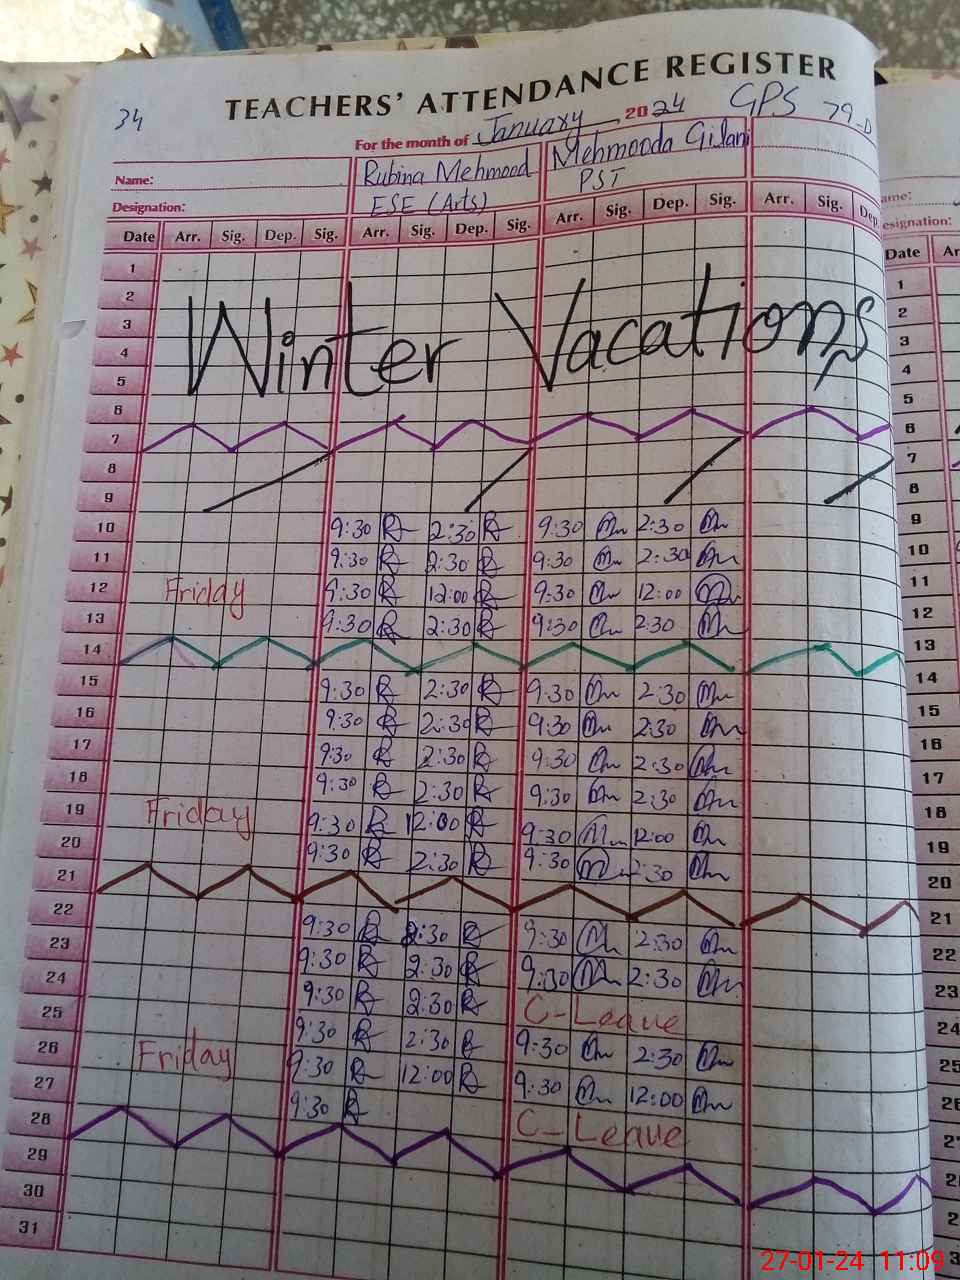 34
TEACHERS' ATTENDANCE REGISTER
GPS 79-D
For the month of January 2024
Name: Rubina Mehmood Mehmooda Gilani
Designation: ESE (Arts) PST
Date Arr. Sig. Dep. Sig. Arr. Sig. Dep. Sig. Arr. Sig. Dep. Sig. Arr. Sig. Dep.
1
2
3
4
5
Winter Vacations
6
7
8
9
10 9:30 2:30 9:30 2:30
11 9:30 2:30 9:30 2:30
12 Friday 9:30 12:00 9:30 12:00
13 9:30 2:30 9:30 2:30
14
15 9:30 2:30 9:30 2:30
16 9:30 2:30 9:30 2:30
17 9:30 2:30 9:30 2:30
18 9:30 2:30 9:30 2:30
19 Friday 9:30 12:00 9:30 12:00
20 9:30 2:30 9:30 2:30
21
22 9:30 2:30 9:30 2:30
23 9:30 2:30 9:30 2:30
24 9:30 2:30 C-Leave
25 9:30 2:30 9:30 2:30
26 Friday 9:30 12:00 9:30 12:00
27 9:30 C-Leave
28
29
30
31
ame:
esignation:
Date
1
2
3
4
5
6
7
8
9
10
11
12
13
14
15
16
17
18
19
20
21
22
23
24
25
27-01-24 11:09